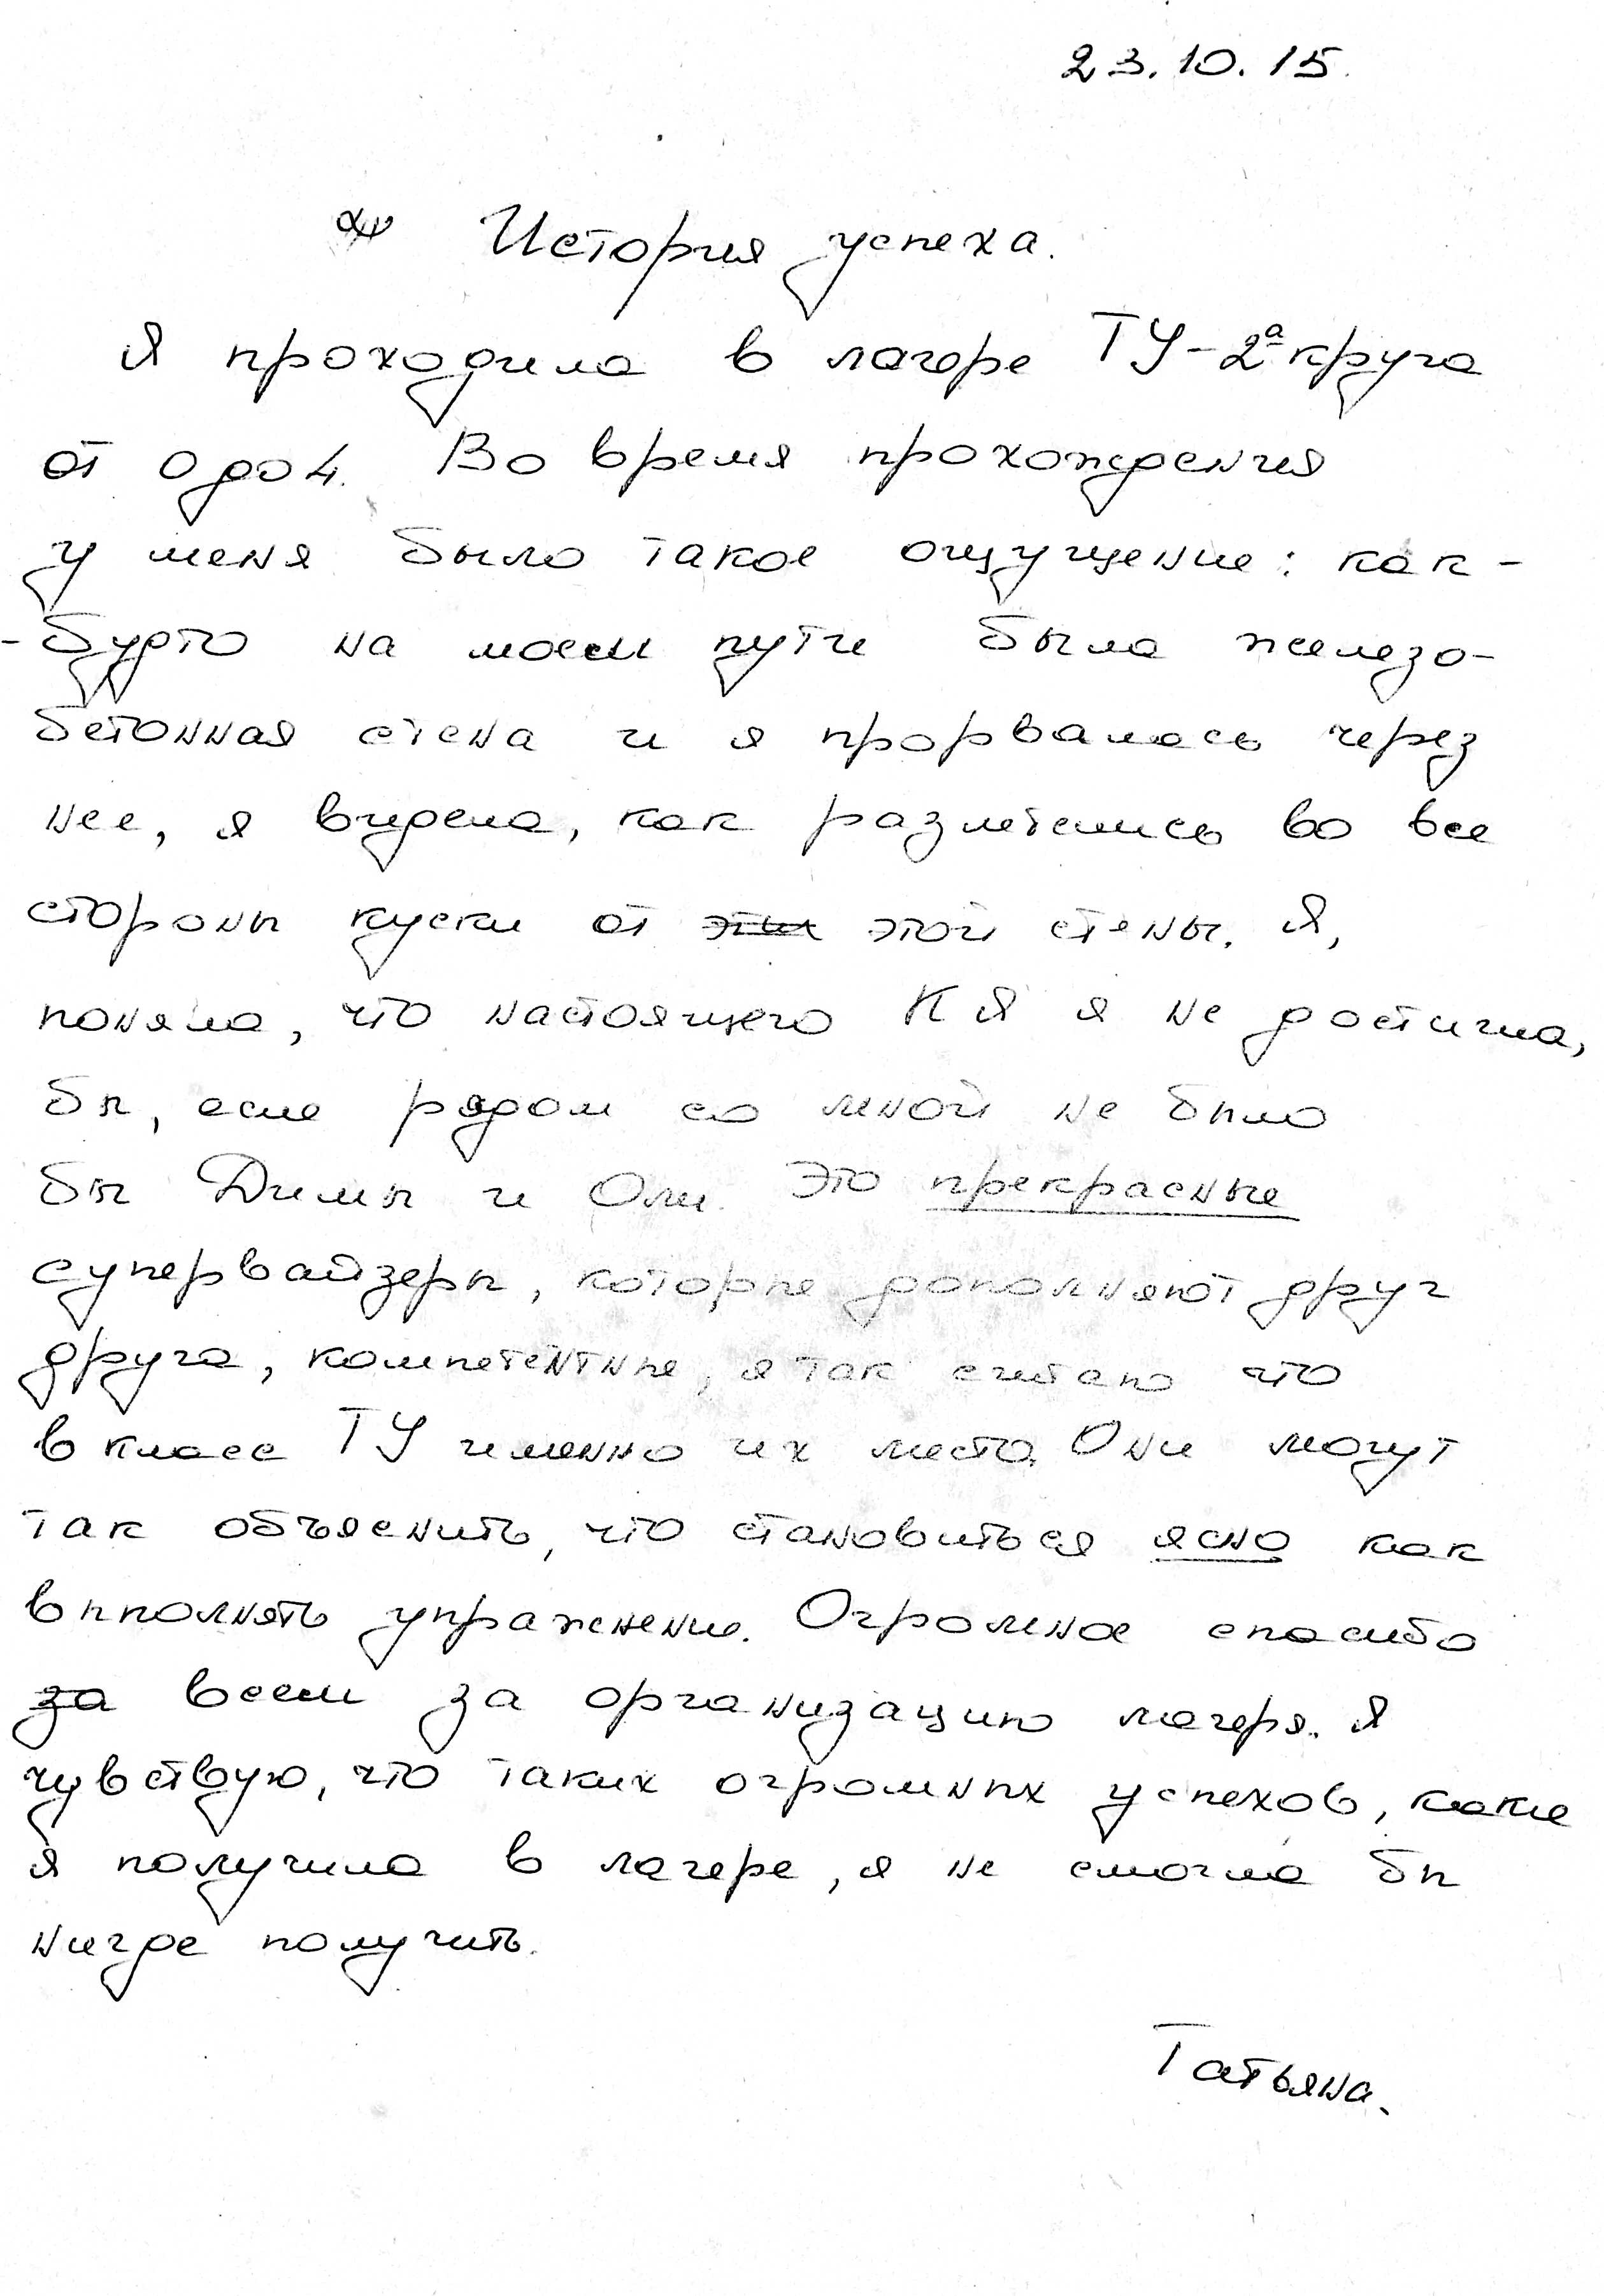 23.10.15.
История успеха.
Я проходила в лагере ТУ-2а круга
от 0 до 4. Во время прохождения
у меня было такое ощущение: как-
-будто на моем пути была железо-
бетонная стена и я прорвалась через
нее, я видела, как разлетелись во все
стороны куски от этой стены. Я,
поняла, что настоящего КЯ я не достигла,
бы, если рядом со мной не было
бы Димы и Оли. Это прекрасные
супервайзеры, которые дополняют друг
друга, компетентные, я так считаю что
в классе ТУ именно их место. Они могут
так объяснить, что становиться ясно как
выполнять упражнение. Огромное спасибо
за всем за организацию лагеря. Я
чувствую, что таких огромных успехов, какие
я получила в лагере, я не смогла бы
нигде получить.
Татьяна.